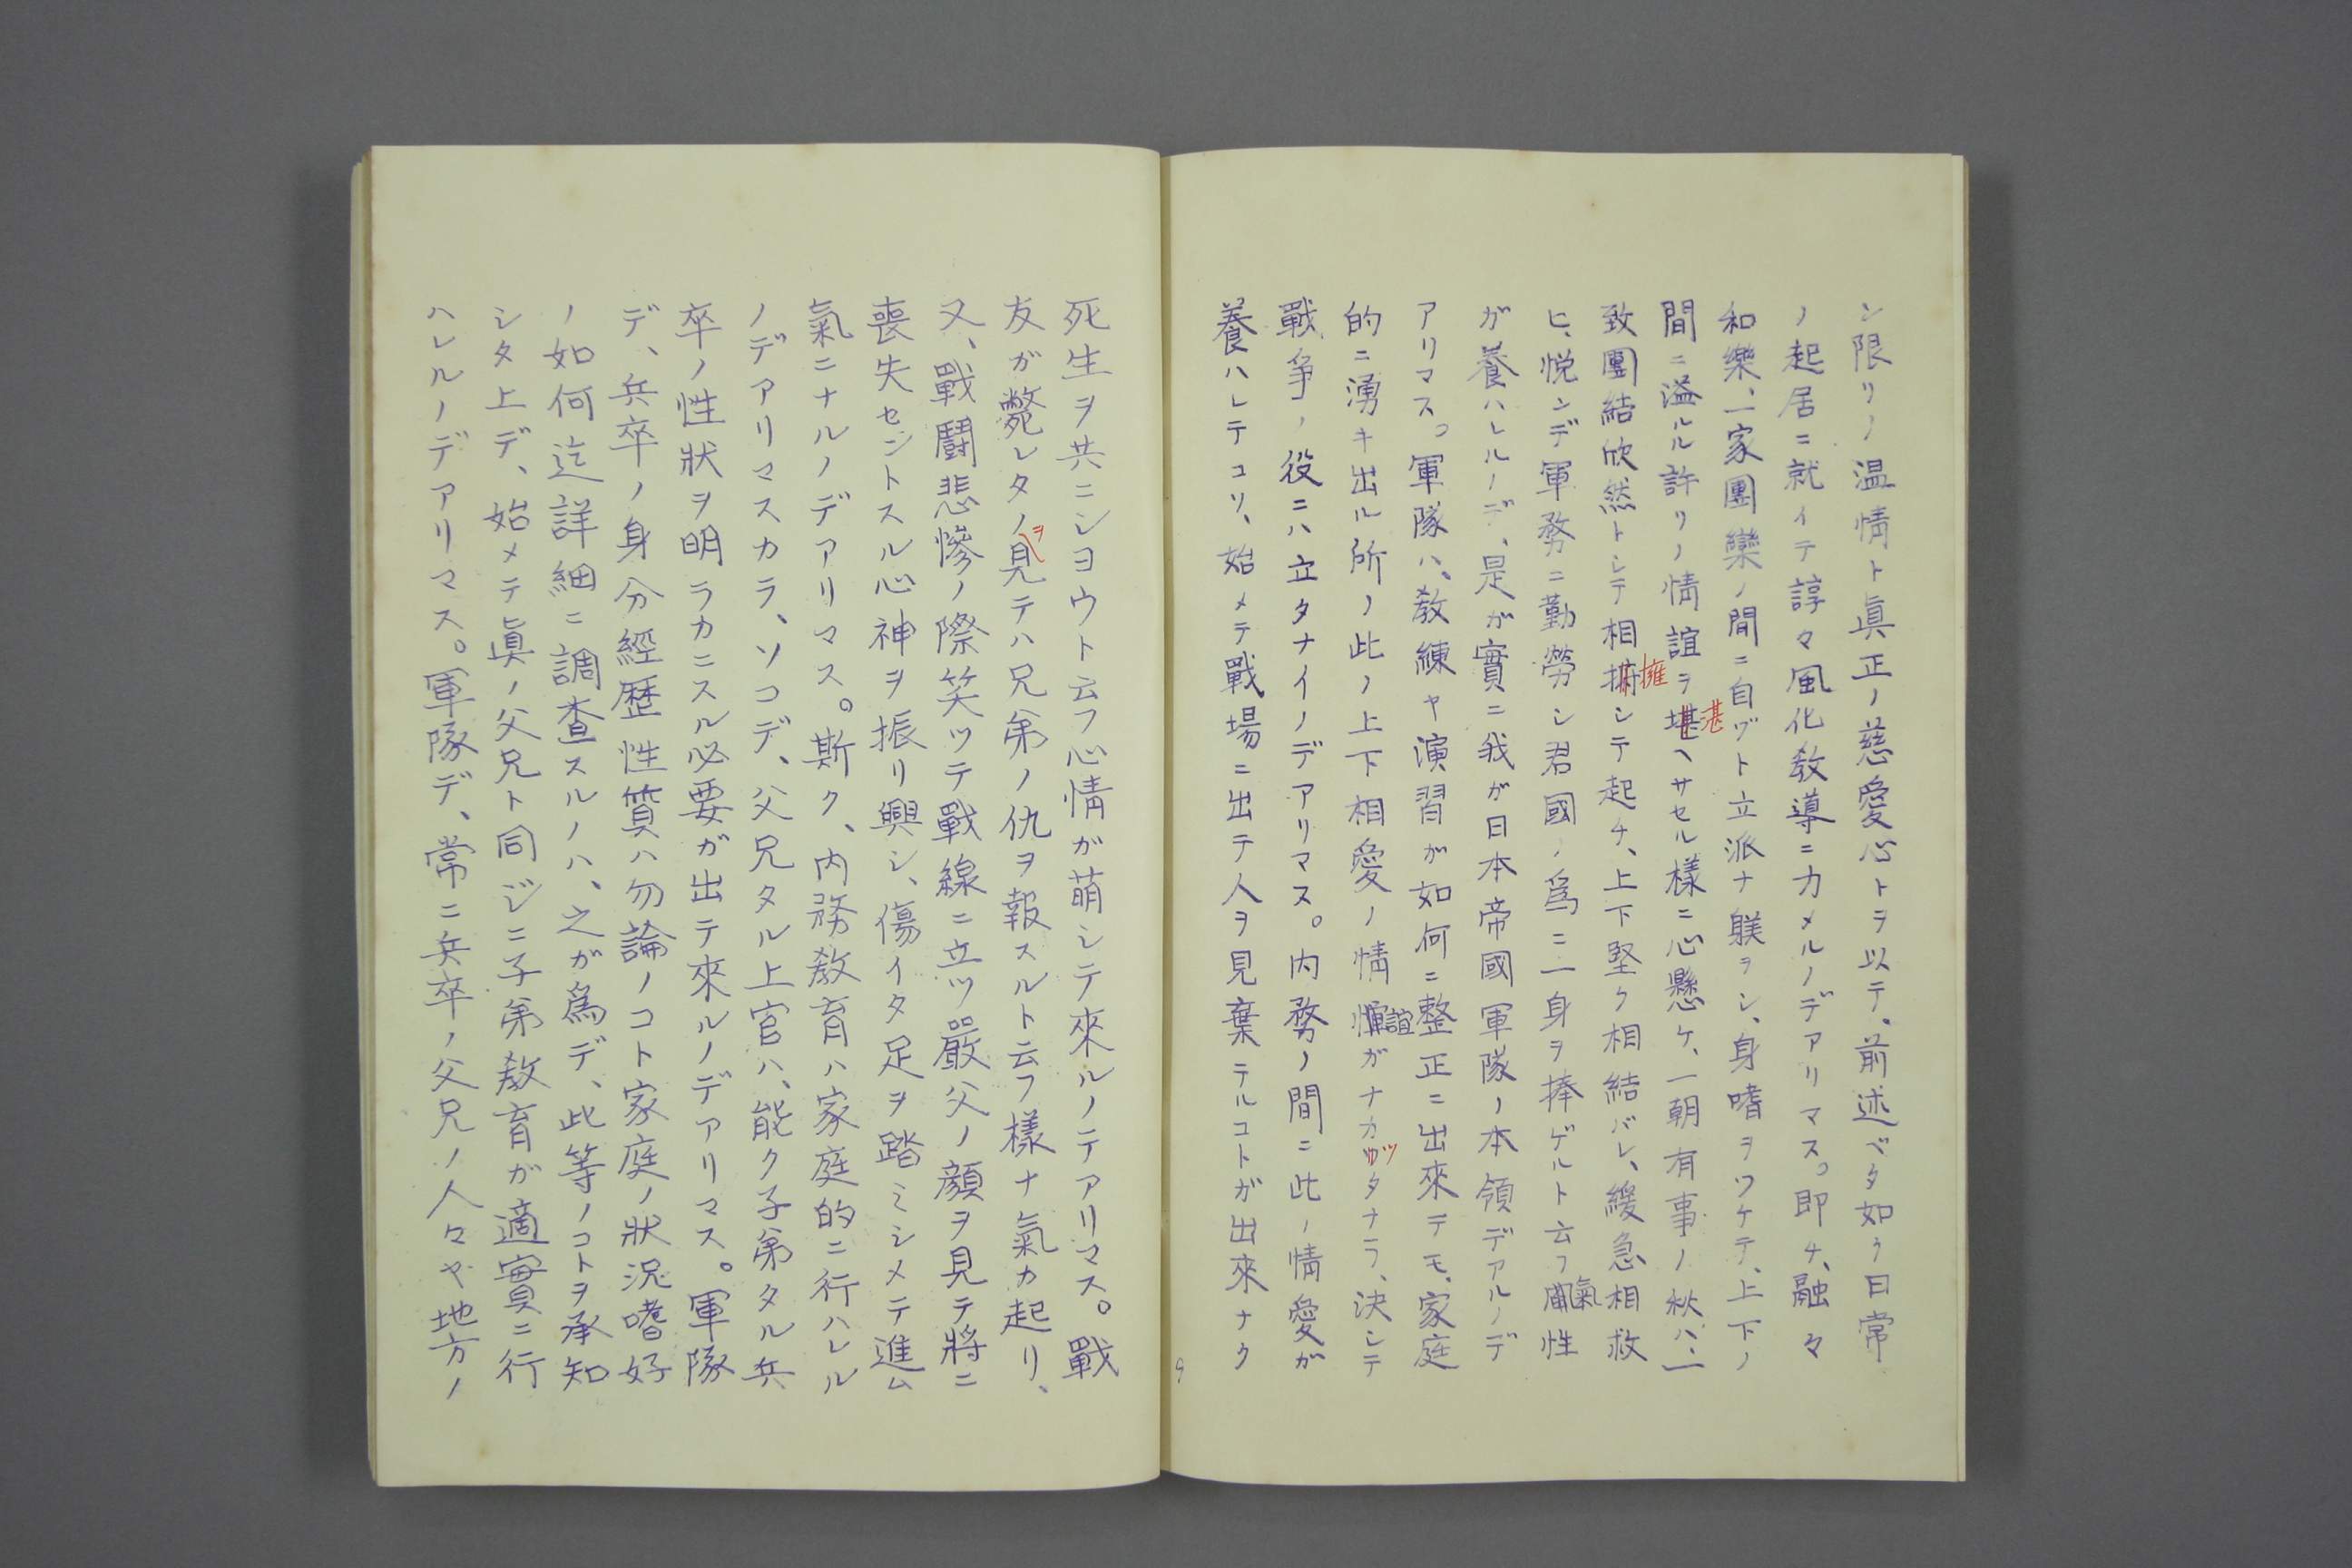 ン限リノ温情ト眞正ノ慈愛心トヲ以テ、前述ベタ如ク日常
ノ起居ニ就イテ諄々風化教導ニカメルノデアリマス。即チ、融々
和樂、一家團欒ノ間ニ自ヅト立派ナ躾ヲシ、身嗜ヲツケテ、上下ノ
間ニ溢ルル許リノ情誼ヲ湛ヘサセル樣ニ心懸ケ、一朝有事ノ秋ハ、一
致團結欣然トシテ相擁シテ起チ、上下堅ク相結バレ、緩急相救
ヒ、悦ンデ軍務ニ勤勞シ君國ノ爲ニ一身ヲ捧ゲルト云フ氣性
が養ハレルノデ、是が實ニ我が日本帝國軍隊ノ本領デアルノデ
アリマス。軍隊ハ、教練ヤ演習が如何ニ整正ニ出來テモ、家庭
的ニ湧キ出ル所ノ此ノ上下相愛ノ情誼ガナカッタナラ、決シテ
戰争ノ役ニハ立タナイノデアリマス。内務ノ間ニ此ノ情愛が
養ハレテコソ、始メテ戰場ニ出テ人ヲ見棄テルコトガ出來ナク
9
死生ヲ共ニシヨウト云フ心情が萌シテ來ルノテアリマス。戰
友が斃レタノヲ見テハ兄弟ノ仇ヲ報スルト云フ様ナ氣カ起リ、
又、戰鬪悲慘ノ際笑ツテ戰線ニ立ツ嚴父ノ顔ヲ見テ將ニ
喪失セントスル心神ヲ振リ興シ、傷イタ足ヲ踏ミシメテ進ム
氣ニナルノデアリマス。斯ク、内務教育ハ家庭的ニ行ハレル
ノデアリマスカラ、ソコデ、父兄タル上官ハ、能ク子弟タル兵
卒ノ性狀ヲ明ラカニスル必要が出テ來ルノデアリマス。軍隊
デ、兵卒ノ身分經歷性質ハ勿論ノコト家庭ノ狀況嗜好
ノ如何迄詳細ニ調查スルノハ、之が爲デ、此等ノコトヲ承知
シタ上デ、始メテ眞ノ父兄ト同ジニ子弟教育が適實ニ行
ハレルノデアリマス。軍隊デ、常ニ兵卒ノ父兄ノ人々ヤ地方ノ